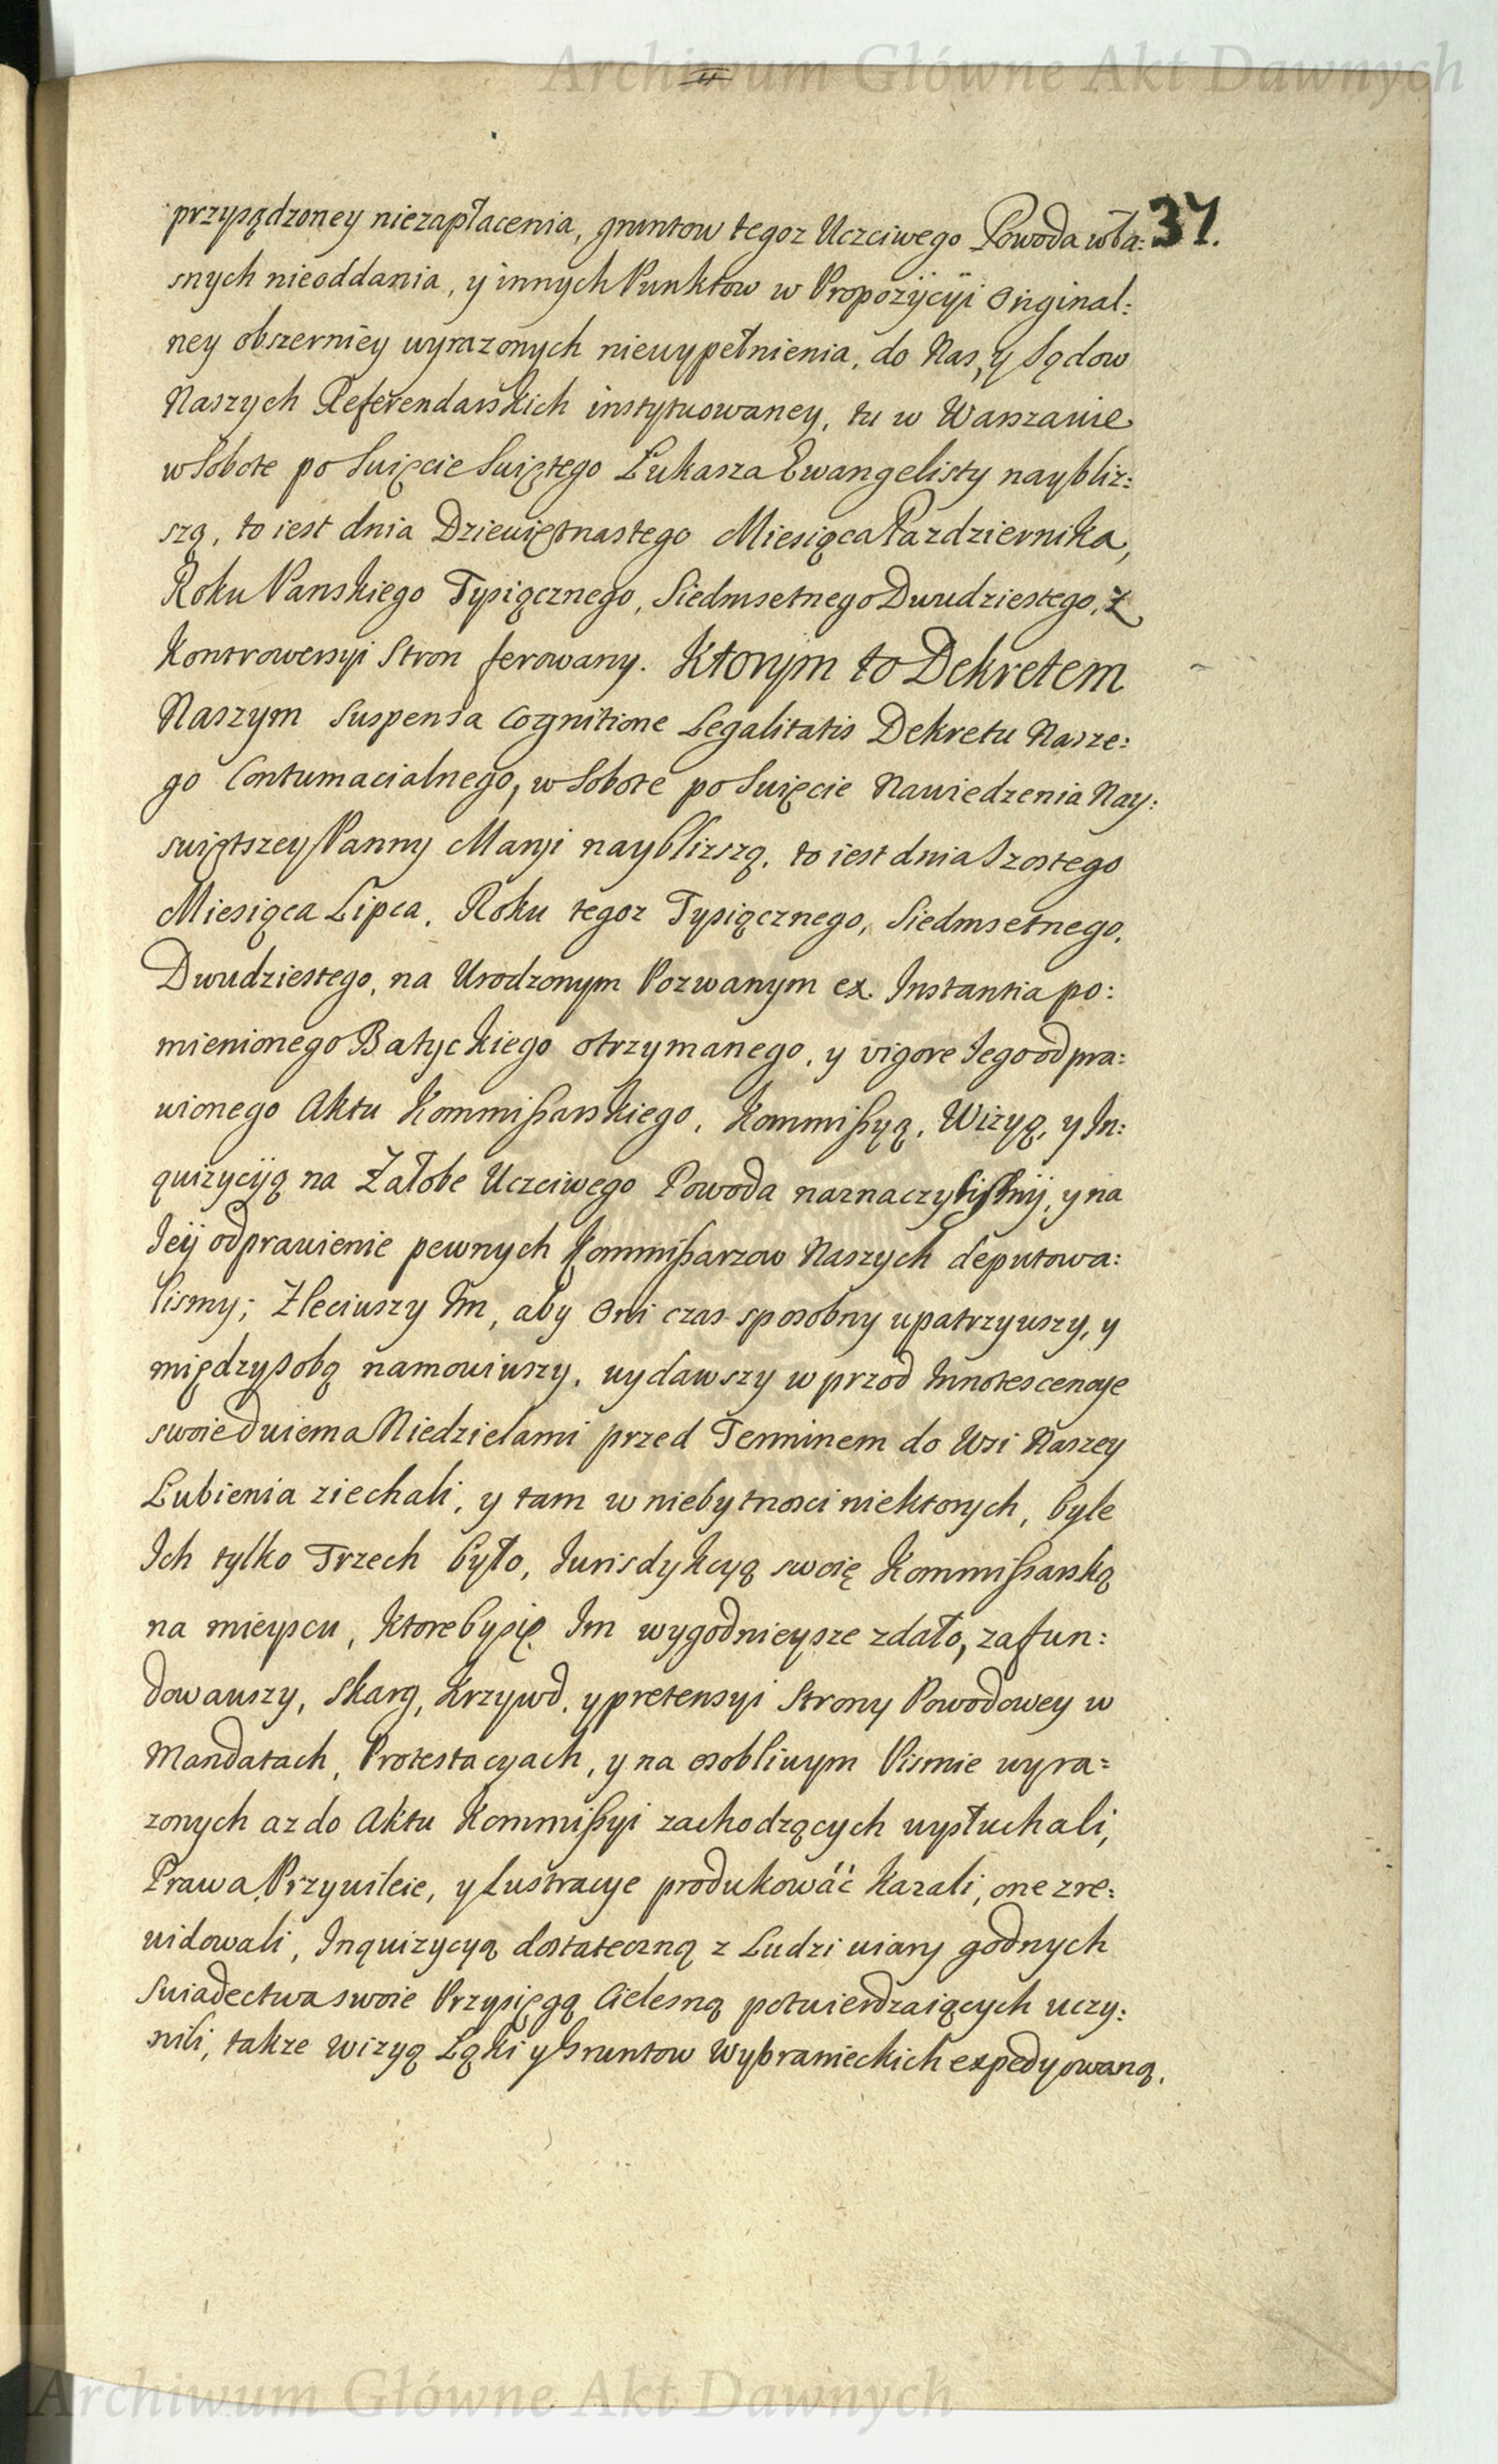 Archiwum Główne Akt Dawnych
przysądzoney niezapłacenia, gruntow tegoz Uczciwego Powoda wła: 37.
snych nieoddania, y innych Punktow w Propozycyi Original:
ney obszerniey wyrazonych niewypełnienia, do Nas, y Sądow
Naszych Referendarskich instytuowaney, tu w Warszawie
w Sobote po Swięcie Swiętego Łukasza Ewangelisty naybliz:
szą, to iest dnia Dziewiętnastego Miesiąca Pazdziernika,
Roku Panskiego Tysiącznego, Siedmsetnego Dwudziestego, z
Kontrowersyi Stron ferowany. Ktorym to Dekretem
Naszym Suspensa Cognitione Legalitatis Dekretu Nasze:
go Contumacialnego, w Sobote po Swięcie Nawiedzenia Nay:
swiętszey Panny Maryi nayblizszą, to iest dnia Szostego
Miesiąca Lipca, Roku tegoz Tysiącznego, Siedmsetnego,
Dwudziestego, na Urodzonym Pozwanym ex Instantia po:
mienionego Batyckiego otrzymanego, y vigore Iego odpra:
wionego Aktu Kommißarskiego, Kommißyą, Wizyą, y In:
quizycyą na Załobe Uczciwego Powoda naznaczylismy, y na
Iey odprawienie pewnych Kommißarzow Naszych deputowa:
lismy; Zleciwszy Im, aby Oni czas sposobny upatrzywszy, y
między sobą namowiwszy, wydawszy wprzod Innotescencye
swoie dwiema Niedzielami przed Terminem do Wsi Naszey
Lubienia ziechali, y tam w niebytnosci niektorych, byle
Ich tylko Trzech było, Iurisdykcyą swoię Kommißarską
na mieyscu, ktoreby się Im wygodnieysze zdało, zafun:
dowawszy, Skarg, Krzywd, y pretensyi Strony Powodowey w
Mandatach, Protestacyach, y na osobliwym Pismie wyra:
zonych az do Aktu Kommißyi zachodzących wysłuchali,
Prawa, Przywileie, y Lustracye produkowáć kazali, one zre:
widowali, Inquizycyą dostateczną z Ludzi wiary godnych
Swiadectwa swoie Przysięgą Cielesną potwierdzaiących uczy:
nili, takze Wizyą Łąki y Gruntow Wybranieckich expedyowaną,
Archiwum Główne Akt Dawnych